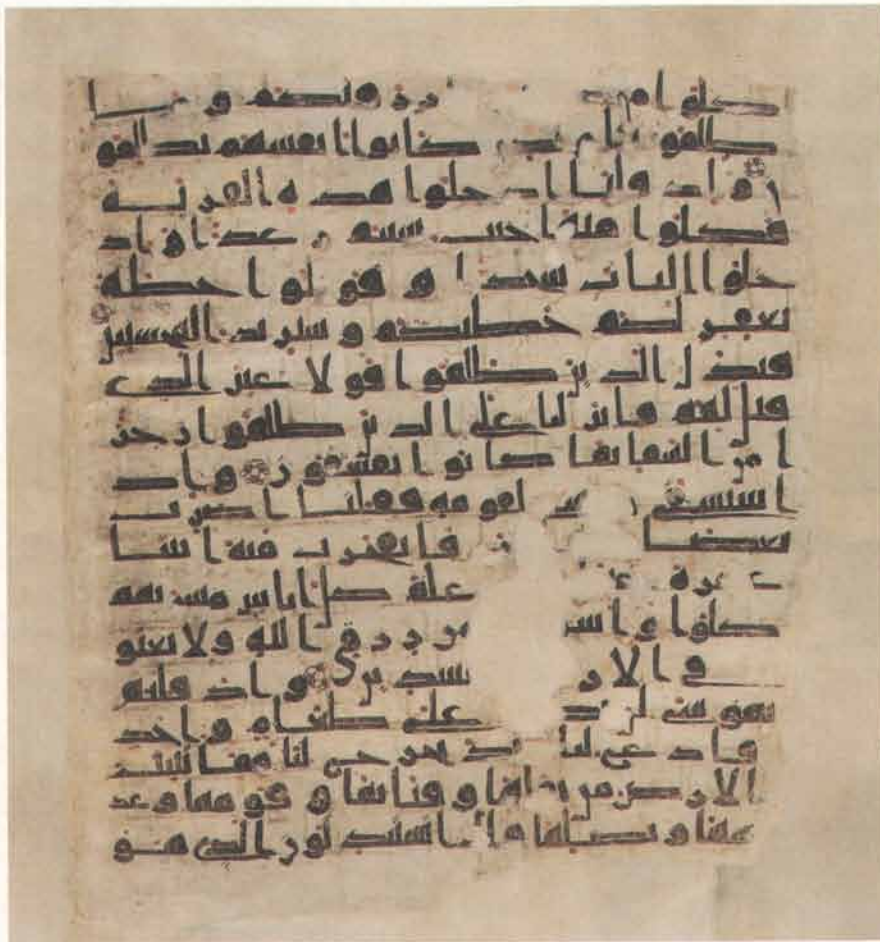 كلوا من رزقنكم و ما
ظلمونا ولكن كانوا انفسهم يظلمو
ن واذ قلنا ادخلوا هذه القرية
فكلوا منها حيث شئتم رغدا واد
خلوا الباب سجدا و قولوا حطة
نغفر لكم خطيكم وسنزيد المحسنين
فبدل الذين ظلموا قولا غير الذي
قيل لهم فانزلنا على الذين ظلموا رجز
ا من السما بما كانوا يفسقون واذ
استسقى لقومه فقلنا اضرب
بعصا فانفجرت منه اثنتا
عشرة علم كل اناس مشربهم
كلوا واشر من رزق الله ولا تعثو
في الار مفسدين واذ قلتم
يموسى لن على طعام واحد
فادع لنا يخرج لنا مما تنبت
الارض من بقلها وقثاىها وفومها وعد
سها وبصلها قال اتستبدلون الذي هو